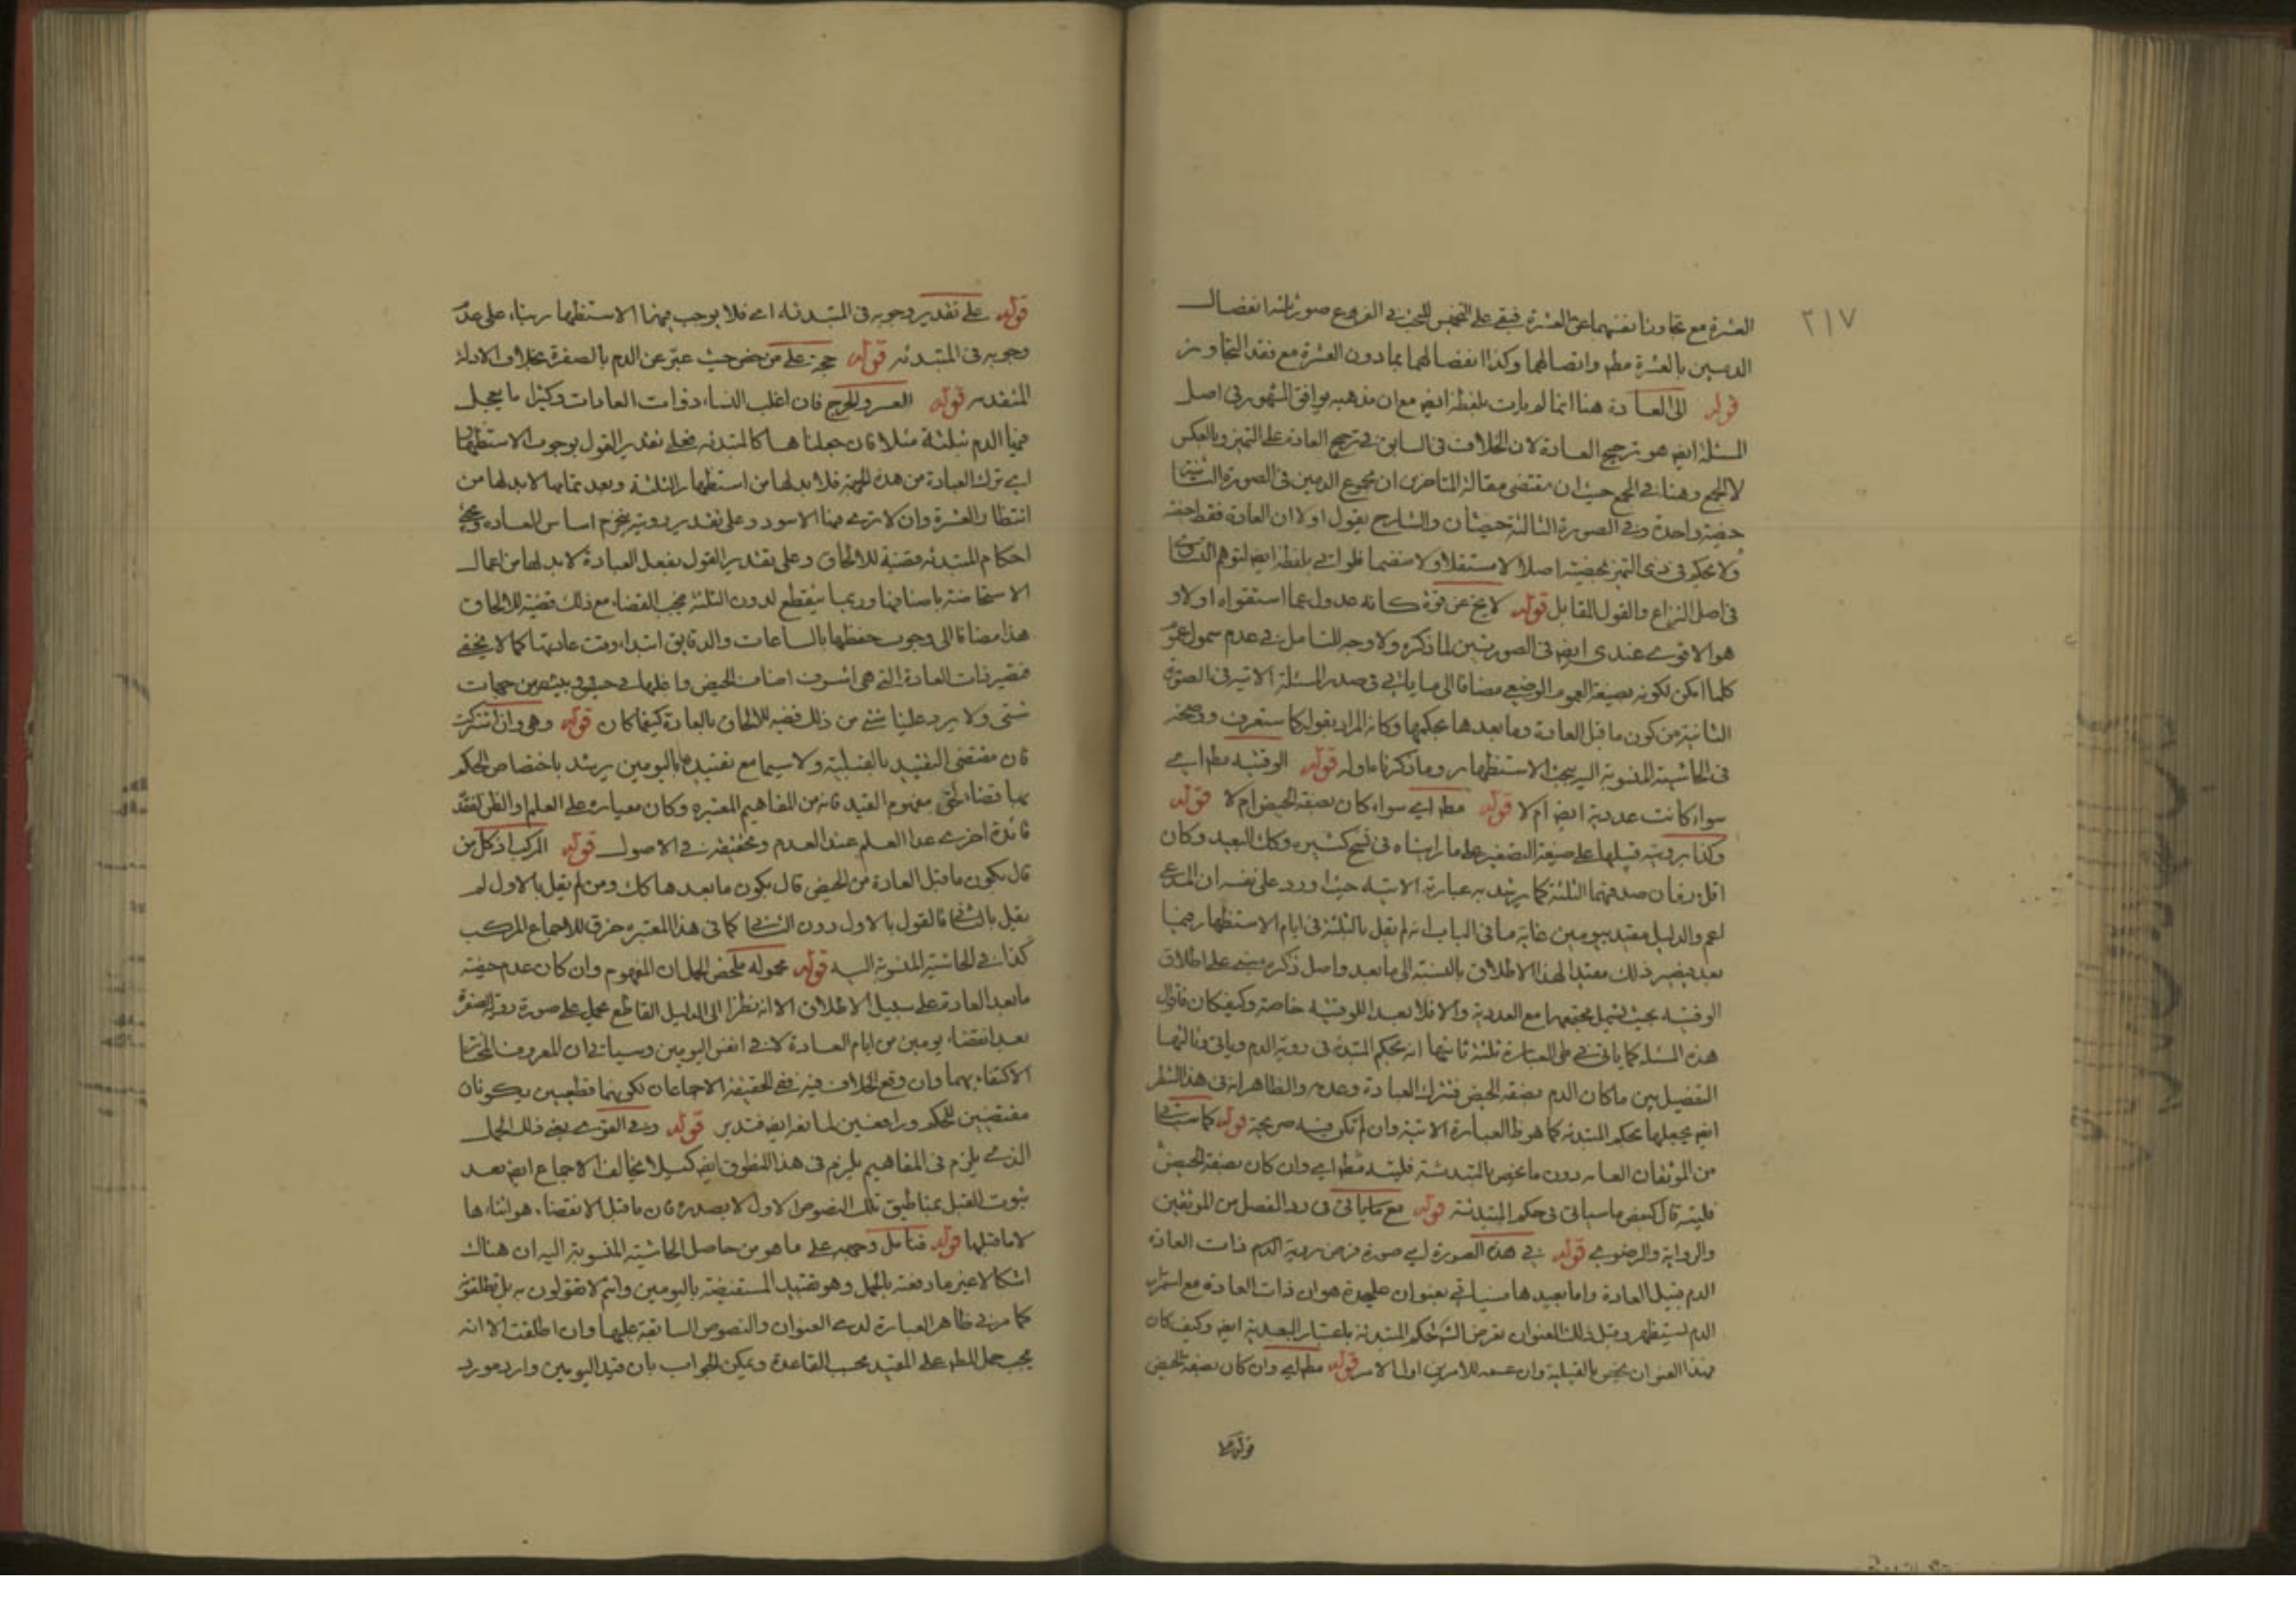 ٢١٧
العشرة مع تجاوز ما نفسهما عن العشرة فبقى على الفروع صور ثلثة انفصال
الدمين بالعشرة مطم واتصالهما وكذا انفصالهما بما دون العشرة مع فقد التجاوز
قوله الى العادة هنا انما لم يات بلفظة ايضه مع ان مذهبه يوافق المشهور في اصل
المسئلة ايضه هو ترجيح العادة لان الخلاف في السابق في ترجيح العادة على التميز وبالعكس
لا الجمع وهنا في الجمع حيث ان مقتضى مقالة المتاخرين ان مجموع الدمين في الصورة
حيضة واحدة وفي الصورة الثالثة حيضتان والشارح يقول اولا ان العادة فقط حيضة
ولا يحكم في ذى التميز بحيضية اصلا لا مستقلا ولا منضما فلو اتى بلفظة ايضه لتوهم
في اصل النزاع والقول المقابل قوله لا يخ عن قوة كانه عدول عما استقواه اولا و
هو الاقوى عندى ايضه في الصورتين لما ذكره ولا وجه للتامل في عدم شمول عموم
كلما امكن لكونه بصيغة العموم الوضعى مضافا الى ما ياتى في صدر المسئلة الاتية في الصورة
الثانية من كون ما قبل العادة وما بعدها بحكمها وكانه المراد بقوله كما ستعرف ووضحه
في الحاشية المنسوبة اليه ببحث الاستظهار وما ذكرنا اولى قوله الوقتية مطم اى
سواء كانت عددية ايضه ام لا قوله مطم اى سواء كان بصفة الحيض ام لا قوله
وكذا برؤيته قبيلها على صيغة التصغير على ما رايناه في نسخ كثيرة وكك البعيد وكان
اقل زمان صدقهما الثلثة كما يرشد به عبارته الاتية حيث اورد على نفسه ان المدعى
اعم والدليل مقيد بيومين غاية ما في الباب انه لم يقل بالثلثة في ايام الاستظهار فيما
بعد فيصير ذلك مقيدا لهذا الاطلاق بالنسبة الى ما بعد واصل ذكره مبنى على اطلاق
الوقتية بحيث يشمل مجتمعها مع العددية والا فلا بعد للوقتية خاصة وكيف كان فاقوال
هذه المسئلة كما ياتى في طى العبارة ثلثة ثانيها انه بحكم المبتدئة في رؤية الدم وياتى وثالثها
التفصيل بين ما كان الدم بصفة الحيض فتترك العبادة وعدمه والظاهر انه في هذا الشطر
ايضه يجعلها بحكم المبتدئة كما هو ظ العبارة الاتية وان لم تكن فيه صريحة قوله كما سياتى
من الموثقات العامه دون ما يختص بالمبتدئة فليتد مطم اى وان كان بصفة الحيض
فليته قال كبعض ما سياتى في حكم المبتدئة قوله مع ما ياتى في رد الفصل من الموثقين
والرواية والرضوى قوله في هذه الصورة اى صورة فرض رؤية الدم ذات العادة
الدم قبيل العادة واما بعيدها فسياتى بعنوان عليحدة هو ان ذات العادة مع استمرار
الدم تستظهر وقبل ذلك العنوان تعرض لحكم المبتدئة باعتبار البعدية ايضه وكيف كان
فهذا العنوان يختص بالقبلية وان عممه للامرين اول الامر قوله مطم اى وان كان بصفة الحيض
قوله على تقدير وجوبه في المبتدئة اى فلا يوجب فيهنا الاستظهار بناء على عدم
وجوبه في المبتدئه قوله حجة على من خص حيث عبر عن الدم بالصفرة بخلاف الادلة
المتقدمه قوله العسر والحرج فان اغلب النساء ذوات العادات وكثيرا ما يعجل
فيها الدم بثلثة مثلا فان جعلناها كالمبتدئه فعلى تقدير القول بوجوب الاستظهار
اى ترك العبادة من هذه الجهة فلا بد لها من استظهار الثلثة وبعد تمامها لا بد لها من
انتظار العشرة وان لا ترى فيها الاسود وعلى تقدير رؤيته ينخرم اساس العادة ويجئ
احكام المبتدئه قضية للالحاق وعلى تقدير القول بفعل العبادة لا بد لها من اعمال
الاستحاضة باصنافها وربما ينقطع لدون الثلثة فيجب القضاء مع ذلك قضية للالحاق
هذا مضافا الى وجوب حفظها بالساعات والدقايق ابتداء وقت عادتها كما لا يخفى
فتصير ذات العادة التى هى اشرف اصناف الحيض واقلها في حيص وبيص من جهات
شتى ولا يرد علينا شئ من ذلك قضية للالحاق بالعادة كيفما كان قوله وهى وان اشتركت
فان مقتضى التقييد بالقبلية ولا سيما مع تقييدها باليومين يرشد باختصاص الحكم
بها قضاء لحق مفهوم القيد فانه من المفاهيم المعتبره وكان معيارى على العلم او الظن لفقد
فائدة اخرى عدا العلم عند العدم وتحقيقه في الاصول قوله المركب اذ كل من
قال بكون ما قبل العادة من الحيض قال بكون ما بعدها كك ومن لم يقل بالاول لم
يقل بالثانى فالقول بالاول دون الثانى كما في هذا المعتبره خرق للاجماع المركب
كذا في الحاشية المنسوبة اليه قوله محموله ملخص الحمل ان المفهوم وان كان عدم حيضية
ما بعد العادة على سبيل الاطلاق الا انه نظرا الى الدليل القاطع يحمل على صورة رؤية الصفرة
بعد انقضاء يومين من ايام العادة لا في انفس اليومين وسياتى ان المعروف المختار
الاكتفاء بهما وان وقع الخلاف فيه ففى الحقيقة الاجماعان لكونهما قطعيين يكونان
مقتضيين للحكم ورافعين لمانعه ايضه فتدبر قوله وفى القوى يعنى ذلك الحمل
الذى يلزم في المفاهيم يلزم في هذا المنطوق ايضه كيلا يخالف الاجماع ايضه بعد
ثبوت القبل بمناطيق تلك النصوص الاول لا بصدره فان ما قبل الانقضاء هو اثناءها
لا ما قبلها قوله فتامل وجهه على ما هو من حاصل الحاشية المنسوبة اليه ان هناك
اشكالا غير ما دفعته بالحمل وهو تقييد المستفيضة باليومين وانتم لا تقولون به بل تطلقون
كما مر في ظاهر العبارة لدى العنوان والنصوص السابقة عليها وان اطلقت الا انه
يجب حمل المطم على المقيد بحسب القاعدة ويمكن الجواب بان قيد اليومين وارد مورد